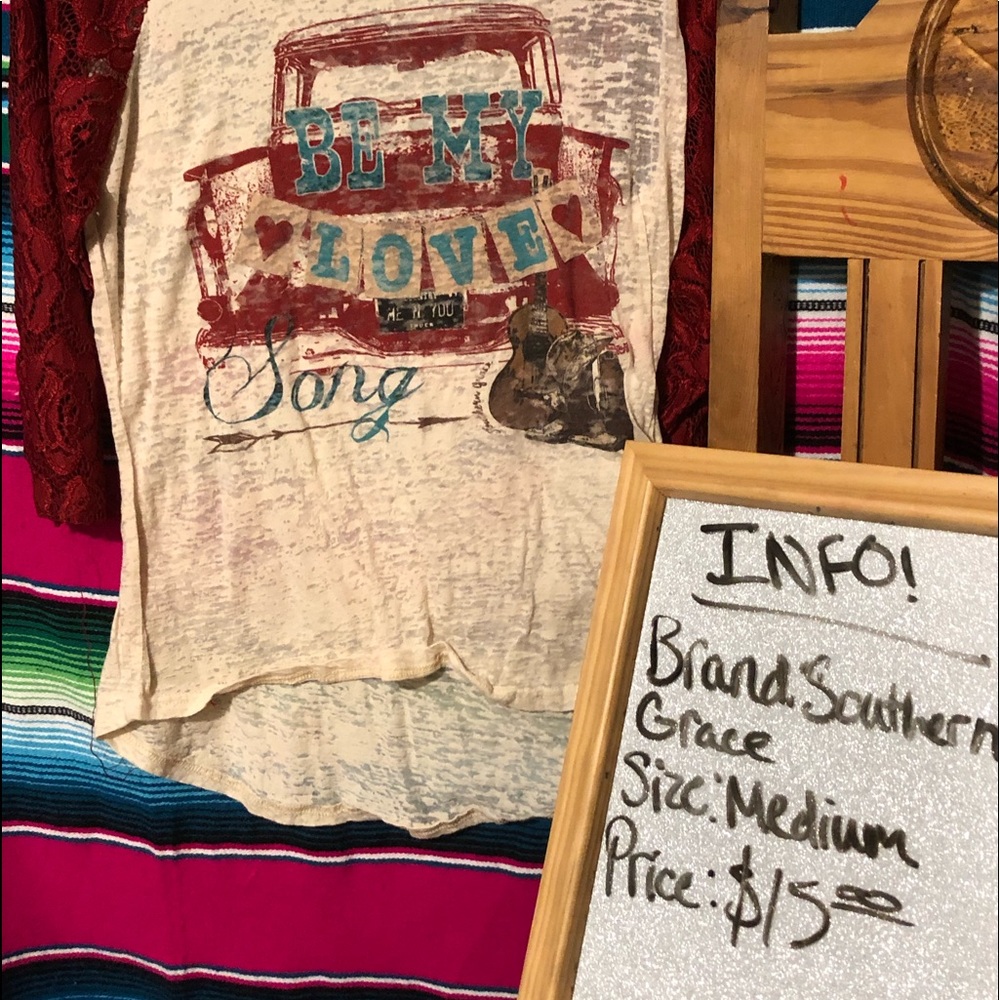 BE MY
LOVE
ME N YOU
Song
INFO!
Brand: Southern
Grace
Size: Medium
Price: $15.00